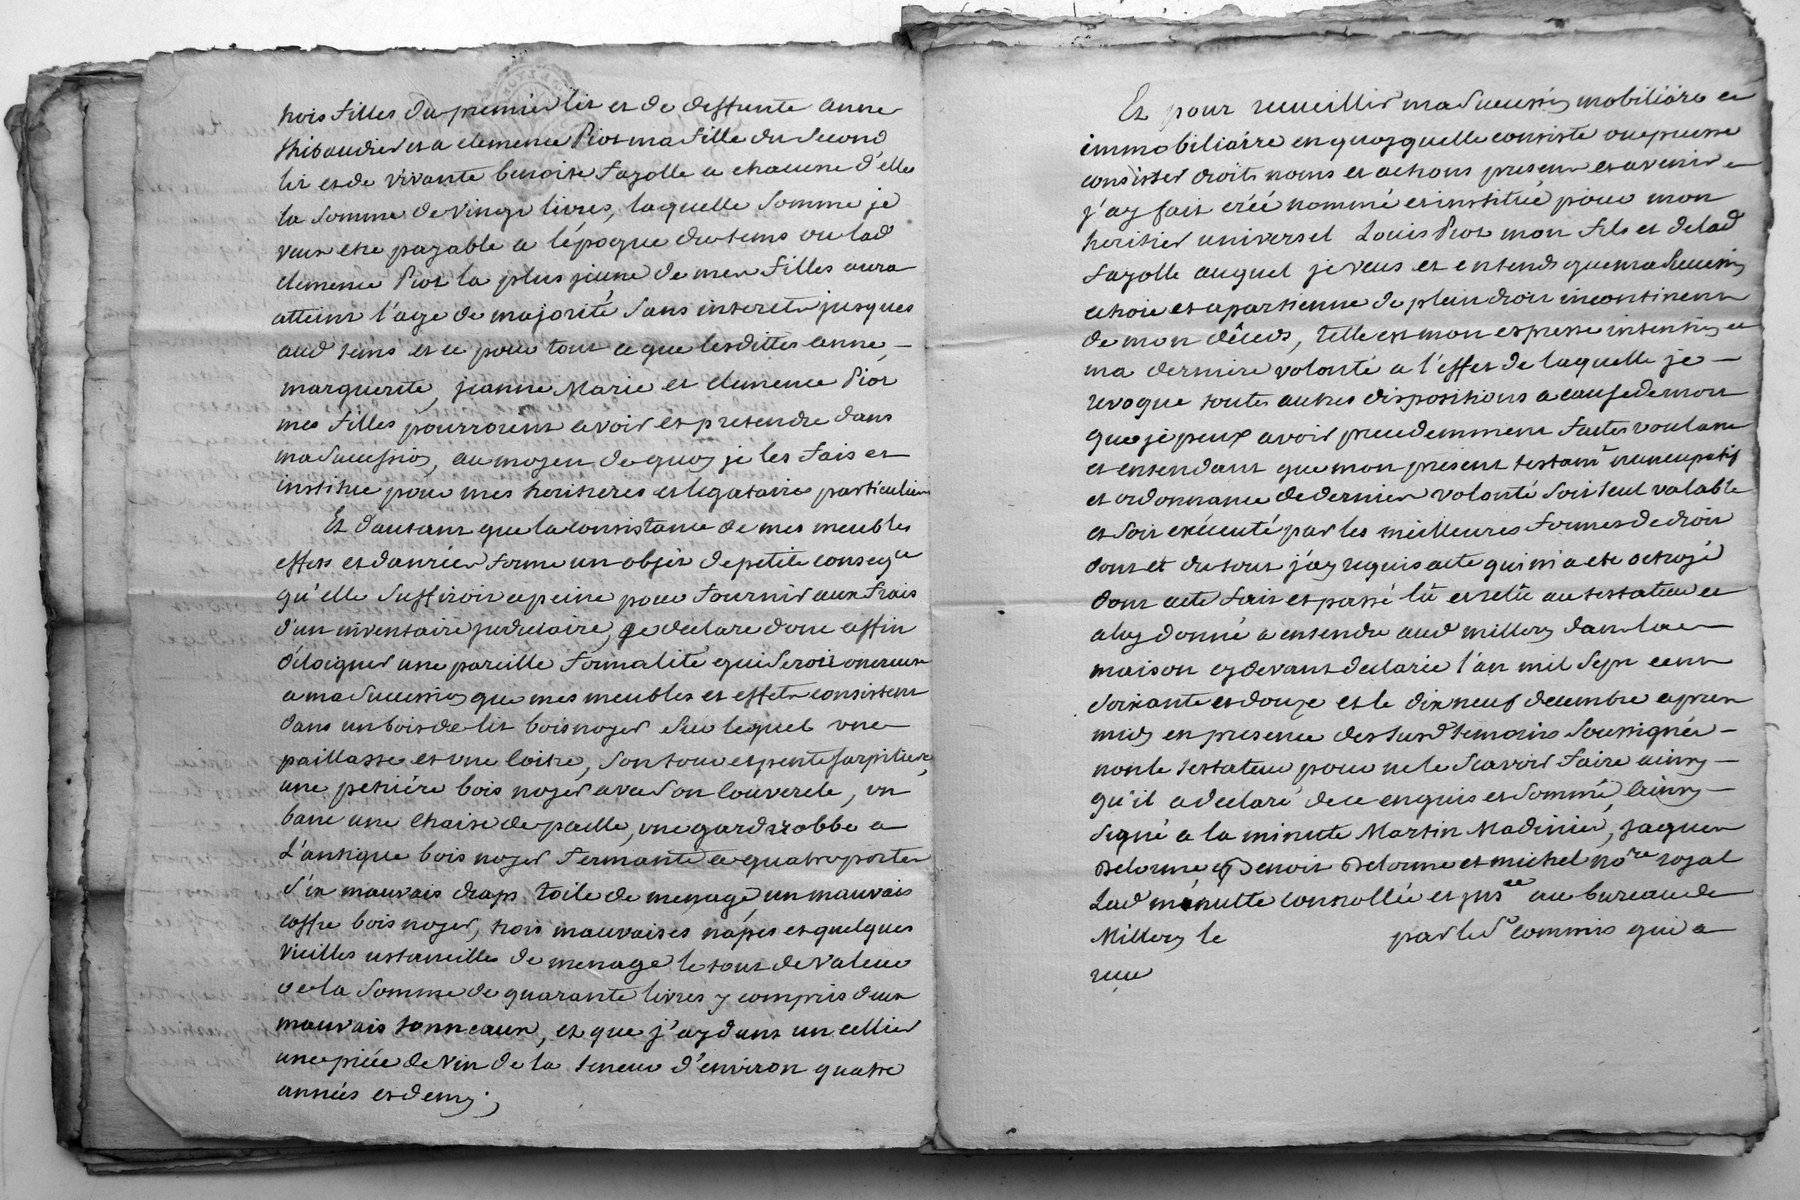 trois filles du premier lit et de deffunte anne
thibaudier et a clemence Piot ma fille du second
lit et de vivante benoite fayolle a chacune d'elle
la somme de vingt livres, laquelle somme je
veux etre payable a l'époque du tems ou lad
clemence Piot la plus jeune de mes filles aura
atteint l'age de majorité sans interets jusques
aud tems et ce pour tout ce que lesdittes anne,-
marguerite, jeanne Marie et clemence Piot
mes filles pourroient avoir et pretendre dans
ma succession, au moyen de quoy je les fais et
institue pour mes heritieres et legataires particulieres
Et d'autant que la consistance de mes meubles
effets et danrées forme un objet de petite conseq.ce
qu'elle suffiroit a peine pour fournir aux frais
d'un inventaire judiciaire, je declare donc affin
d'éloigner une pareille formalité qui seroit onereuse
a ma succession que mes meubles et effets consistent
dans un bois de lit bois noyer sur lequel une
paillasse et une loitre, son tour et pente sarpiliere,
une petriére bois noyer avec son couvercle, un
banc une chaise de paille, une garderobbe a
L'antique bois noyer fermante a quatre portes
six mauvais draps toile de menage un mauvais
coffre bois noyer, trois mauvaises napes et quelques
vieilles ustancilles de menage le tout de valeur
de la somme de quarante livres y compris deux
mauvais tonneaux, et que j'ay dans un cellier
une piéce de vin de la teneur d'environ quatre
années et demy;
Et pour recueillir ma succession mobiliére et
immobiliairre en quoy quelle consiste ou puisse
consister droits noms et actions presens et avenir
j'ay fait créé nommé et institué pour mon
heritier universel Louis Piot mon fils et de lad
fayolle auquel je veus et entends que ma succession
echoie et apartienne de plein droit incontinent
de mon décès, telle est mon expresse intention et
ma derniere volonté a l'effet de laquelle je-
revoque toutes autres dispositions a cause de mort
que je peux avoir precedemment faites voulant
et entendant que mon present testamt nuncupatif
et ordonnance de derniere volonté soit seul valable
et soit exécuté par les meilleures formes de droit
dont et du tout j'ay requis acte qui m'a eté octroyé
dont acte fait et passé lû et relû au testateur et
a luy donné a entendre aud millery dans la
maison cydevant declarée l'an mil sept cent
soixante et douze et le dix neuf decembre apres
midy en presence des susd temoins soussignés-
non le testateur pour ne le sçavoir faire ainsy-
qu'il a declaré de ce enquis et sommé Ainsy-
signé a la minute Martin Madinier, jaques
Delorme Benoit Delorme et michel nore royal
Lad minutte controllée et insée au bureau de
Millery le par le Sr commis qui a
reçu